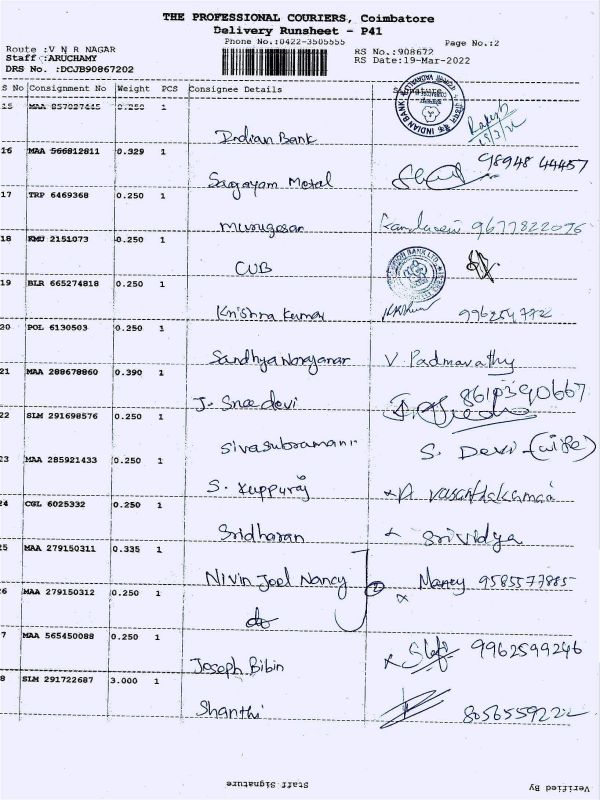 THE PROFESSIONAL COURIERS, Coimbatore
Delivery Runsheet - P41
Phone No.:0422-3505555
Page No.:2
Route :V N R NAGAR
RS No.:908672
Staff :ARUCHAMY
RS Date:19-Mar-2022
DRS No. :DCJB90867202
S No Consignment No Weight PCS Consignee Details Signature
15 MAA 857027445 0.250 1
Indian Bank
INDIAN BANK
16 MAA 566812811 0.329 1
98948 44457
Sagayam Metal
17 TRP 6469368 0.250 1
Murugesan 9677822076
18 KMU 2151073 0.250 1
CUB
19 BLR 665274818 0.250 1
Krishna Kumar
20 POL 6130503 0.250 1
Sandhya Narayanan V. Padmavathy
21 MAA 288678860 0.390 1
8610390667
J. Sree devi
22 SLM 291698576 0.250 1
Sivasubramani S. Devi (wife)
23 MAA 285921433 0.250 1
S. Kuppuraj
24 CGL 6025332 0.250 1
Sridharan Srividya
25 MAA 279150311 0.335 1
Nivin Joel Nancy 2 Nancy 9585577885
26 MAA 279150312 0.250 1
do
7 MAA 565450088 0.250 1
9962599246
Joseph Bibin
8 SLM 291722687 3.000 1
Shanthi 8056559222
Staff Signature
Verified By